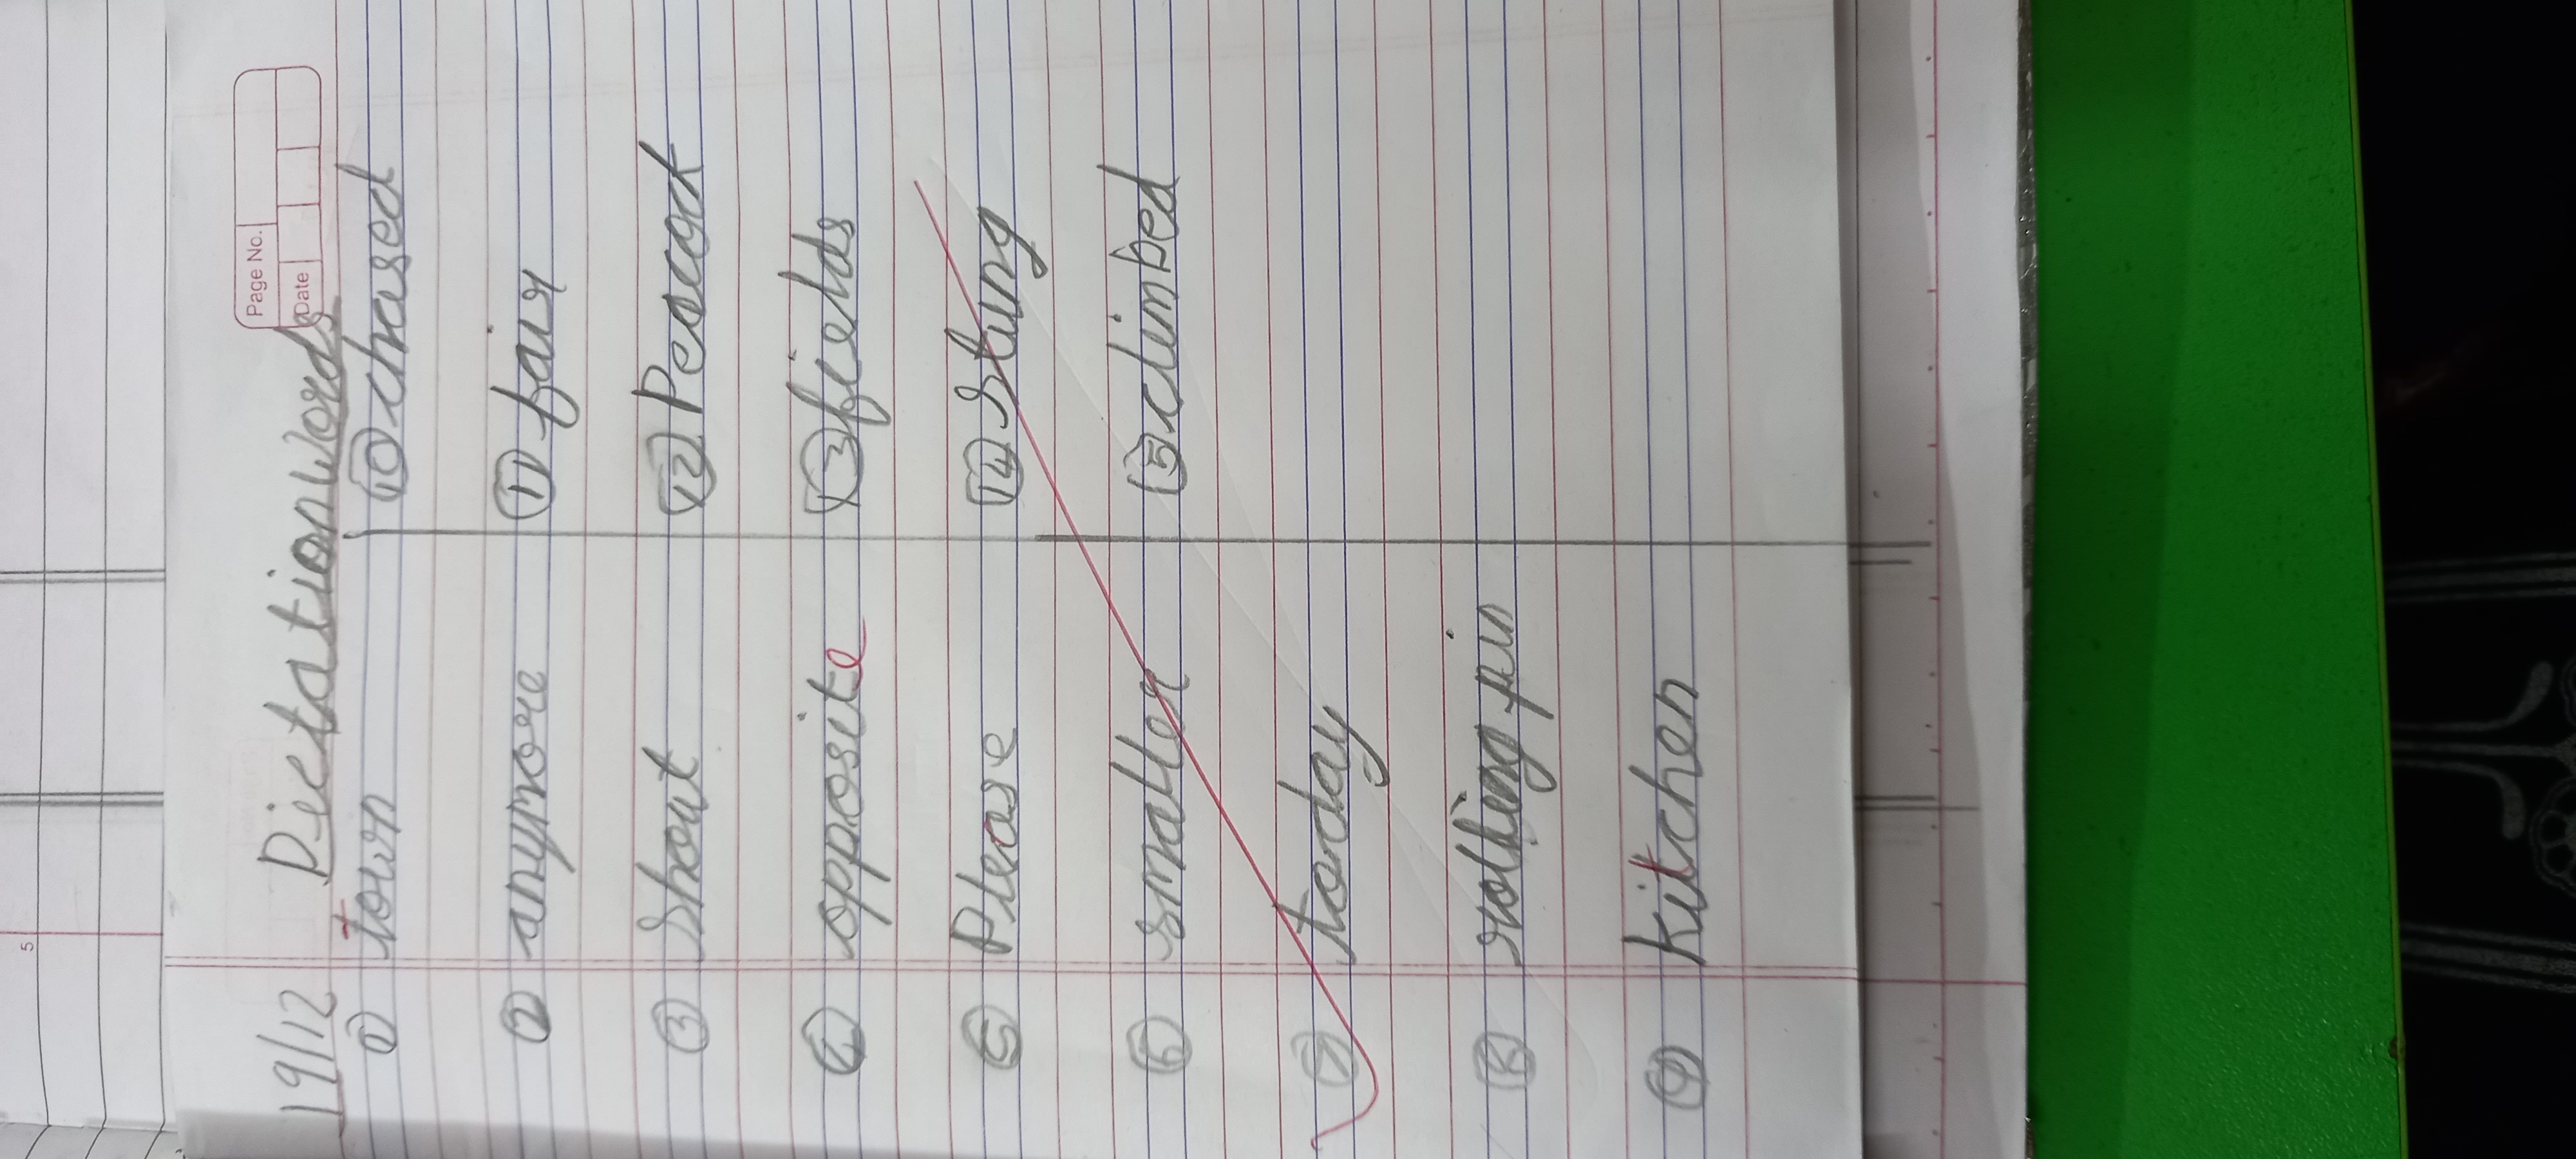 Page No.
Date
19/12 Dictation Words
① town
② anymore
③ shout
④ opposite
⑤ Please
⑥ smaller
⑦ today
⑧ rolling pin
⑨ kitchen
⑩ chased
⑪ fair
⑫ Pecock
⑬ fields
⑭ stung
⑮ climbed
5